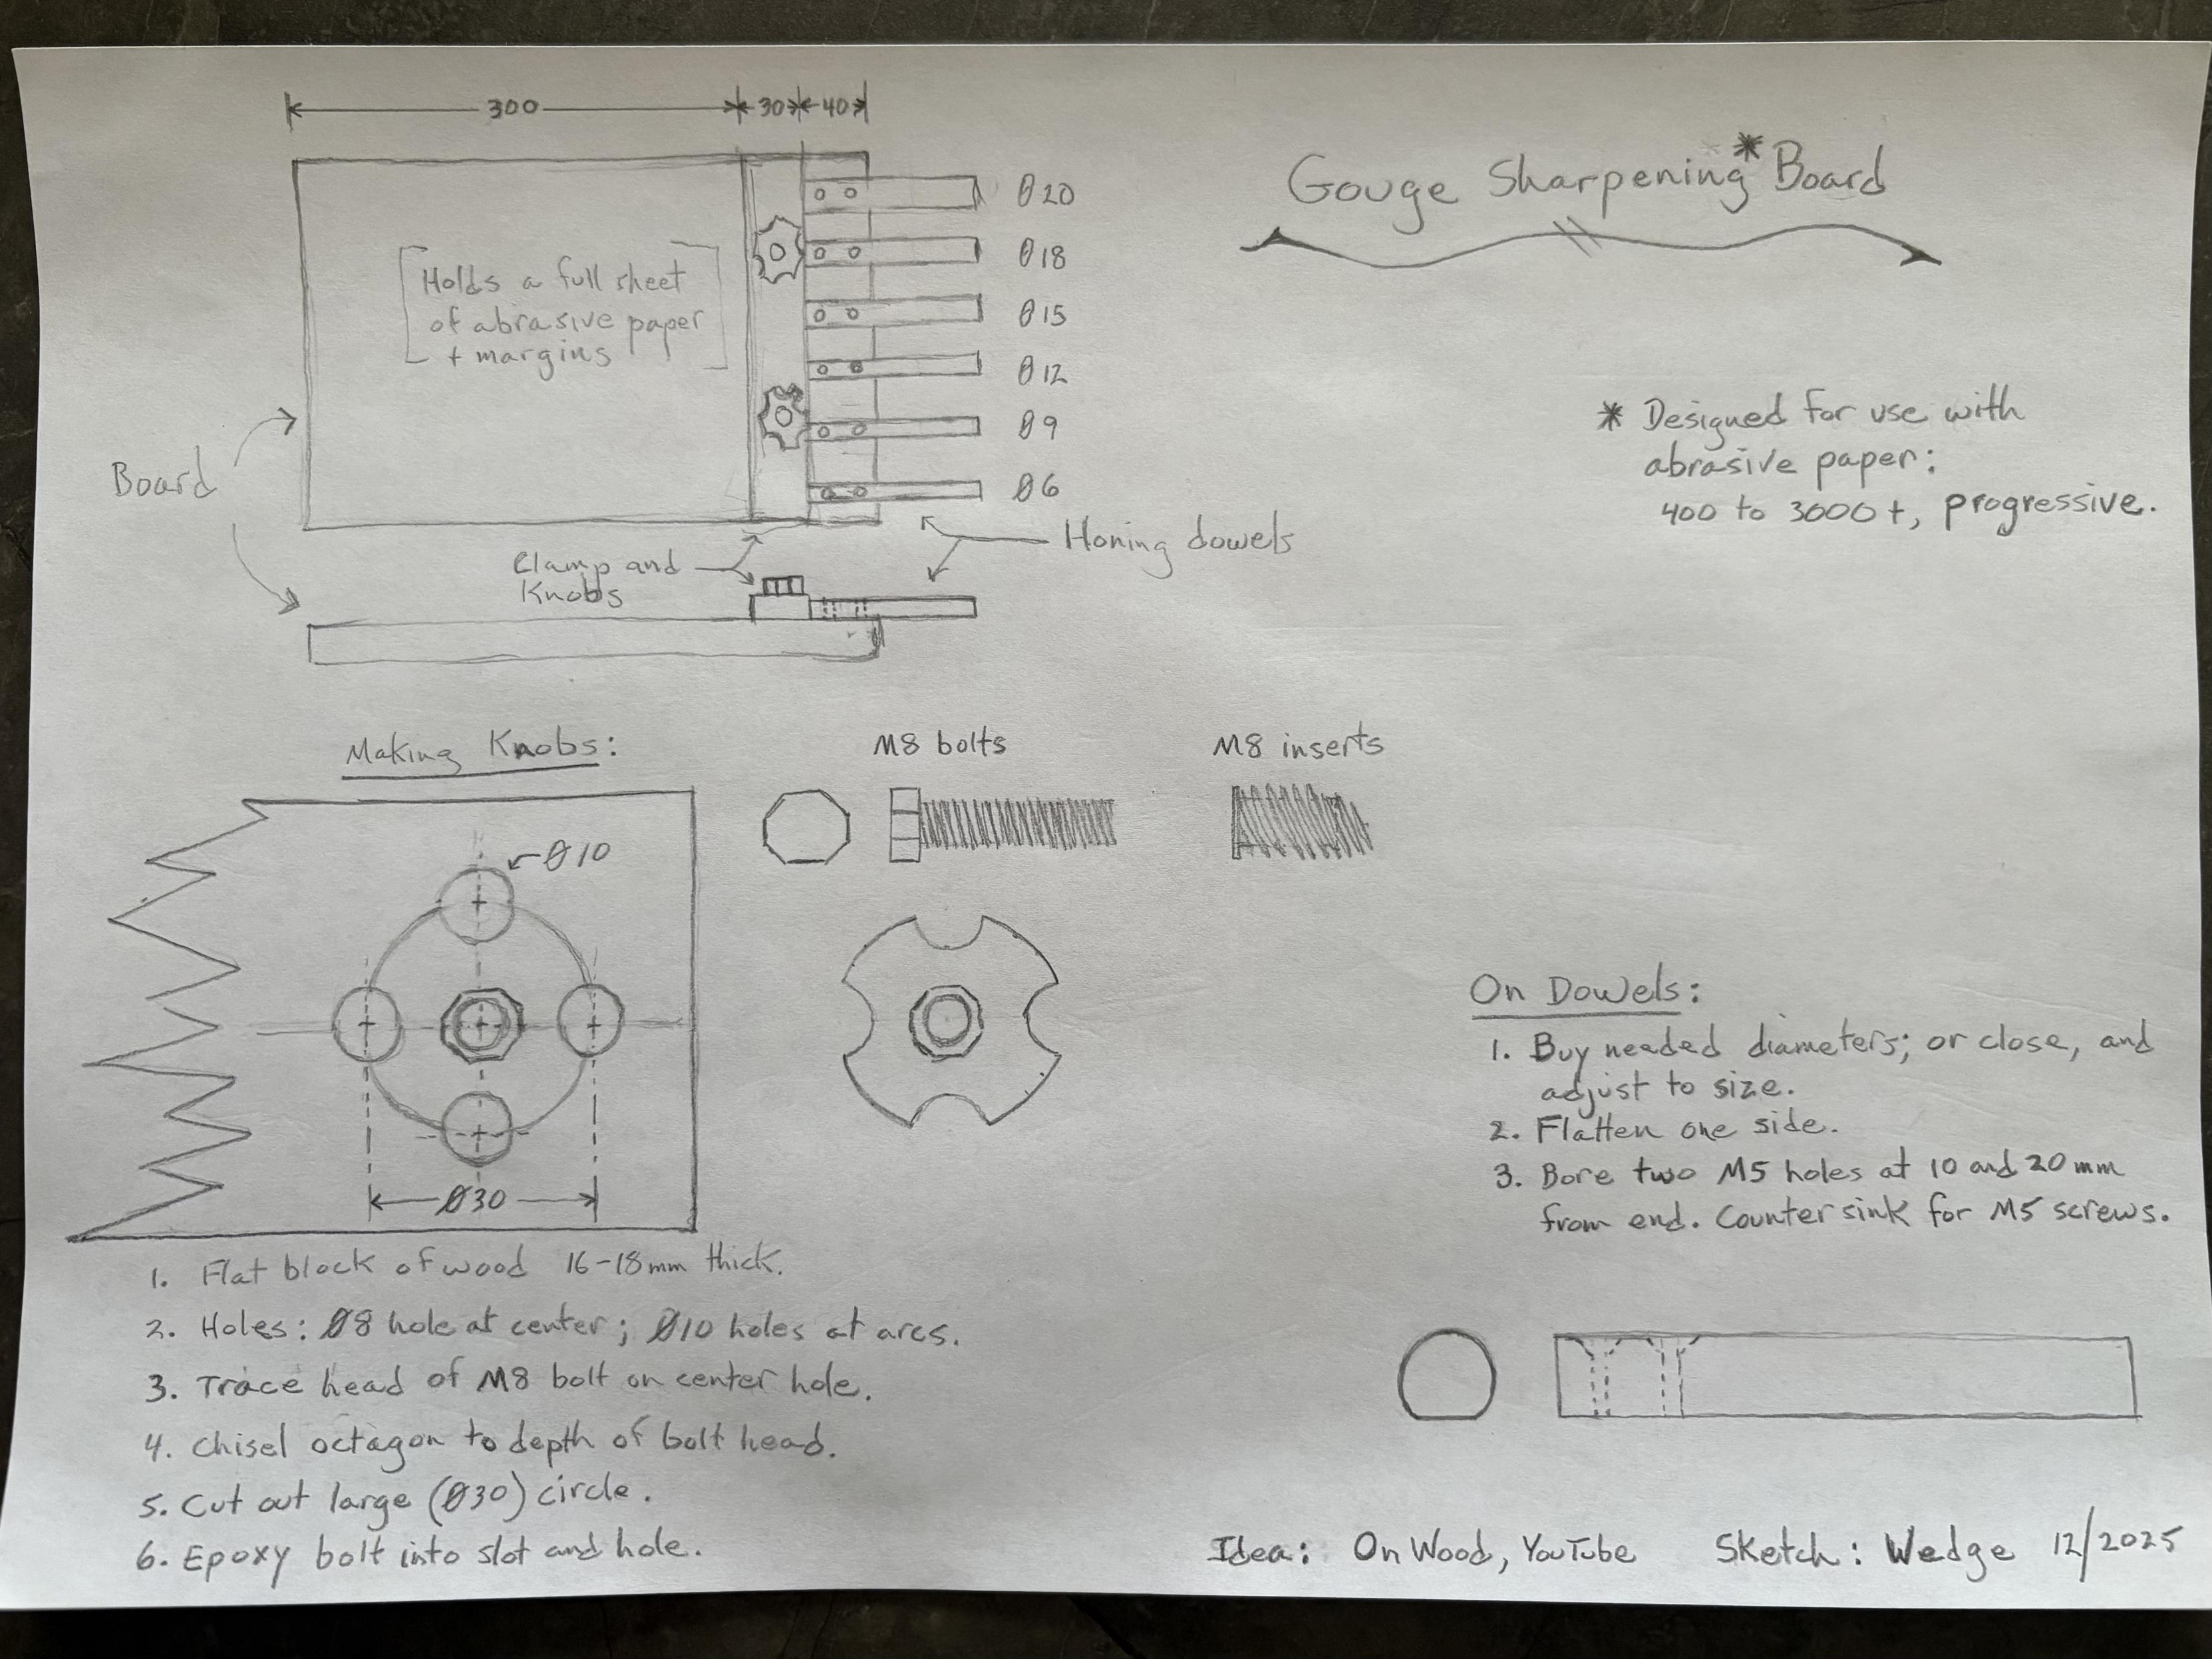 300 30 40
Gouge Sharpening* Board
Ø20
Ø18
Ø15
Ø12
Ø9
Ø6
[Holds a full sheet
of abrasive paper
+ margins]
* Designed for use with
abrasive paper:
400 to 3000+, progressive.
Board
Clamp and
Knobs
Honing dowels
Making Knobs:
M8 bolts
M8 inserts
Ø10
Ø30
1. Flat block of wood 16-18mm thick.
2. Holes: Ø8 hole at center; Ø10 holes at arcs.
3. Trace head of M8 bolt on center hole.
4. Chisel octagon to depth of bolt head.
5. Cut out large (Ø30) circle.
6. Epoxy bolt into slot and hole.
On Dowels:
1. Buy needed diameters; or close, and
adjust to size.
2. Flatten one side.
3. Bore two M5 holes at 10 and 20mm
from end. Counter sink for M5 screws.
Idea: On Wood, YouTube Sketch: Wedge 12/2025